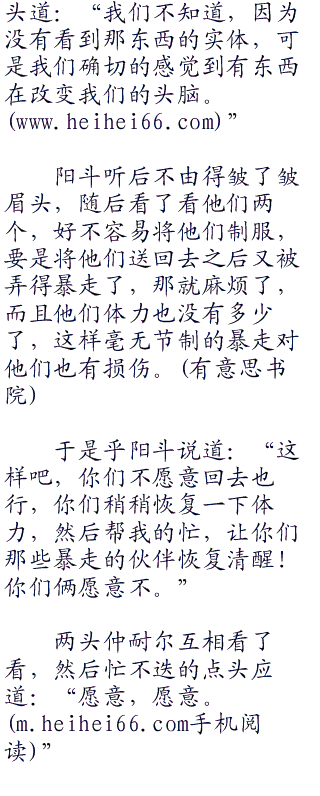 头道：“我们不知道，因为
没有看到那东西的实体，可
是我们确切的感觉到有东西
在改变我们的头脑。
(www.heihei66.com)”
阳斗听后不由得皱了皱
眉头，随后看了看他们两
个，好不容易将他们制服，
要是将他们送回去之后又被
弄得暴走了，那就麻烦了，
而且他们体力也没有多少
了，这样毫无节制的暴走对
他们也有损伤。(有意思书
院)
于是乎阳斗说道：“这
样吧，你们不愿意回去也
行，你们稍稍恢复一下体
力，然后帮我的忙，让你们
那些暴走的伙伴恢复清醒！
你们俩愿意不。”
两头仲耐尔互相看了
看，然后忙不迭的点头应
道：“愿意，愿意。
(m.heihei66.com手机阅
读)”